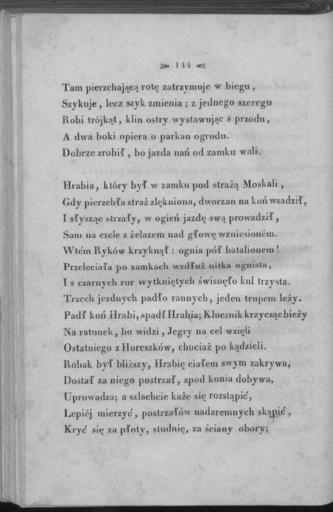 144
Tam pierzchającą rotę zatrzymuje w biegu,
Szykuje, lecz szyk zmienia; z jednego szeregu
Robi trójkąt, klin ostry wystawując s przodu,
A dwa boki opiera o parkan ogrodu.
Dobrze zrobił, bo jazda nań od zamku wali.
Hrabia, który był w zamku pod strażą Moskali,
Gdy pierzchła straż zlękniona, dworzan na koń wsadził,
I słysząc strzały, w ogień jazdę swą prowadził,
Sam na czele z żelazem nad głowę wzniesioném.
Wtém Ryków krzyknął: ognia pół batalionem!
Przeleciała po zamkach wzdłuż nitka ognista,
I s czarnych rur wytkniętych świsnęło kul trzysta.
Trzech jezdnych padło rannych, jeden trupem leży.
Padł koń Hrabi, spadł Hrabia; Klucznik krzycząc bieży
Na ratunek, bo widzi, Jegry na cel wzięli
Ostatniego z Horeszków, chociaż po kądzieli.
Robak był bliższy, Hrabię ciałem swym zakrywa,
Dostał za niego postrzał, spod konia dobywa,
Uprowadza; a szlachcie każe się rozstąpić,
Lepiéj mierzyć, postrzałów nadaremnych skąpić,
Kryć się za płoty, studnię, za ściany obory;